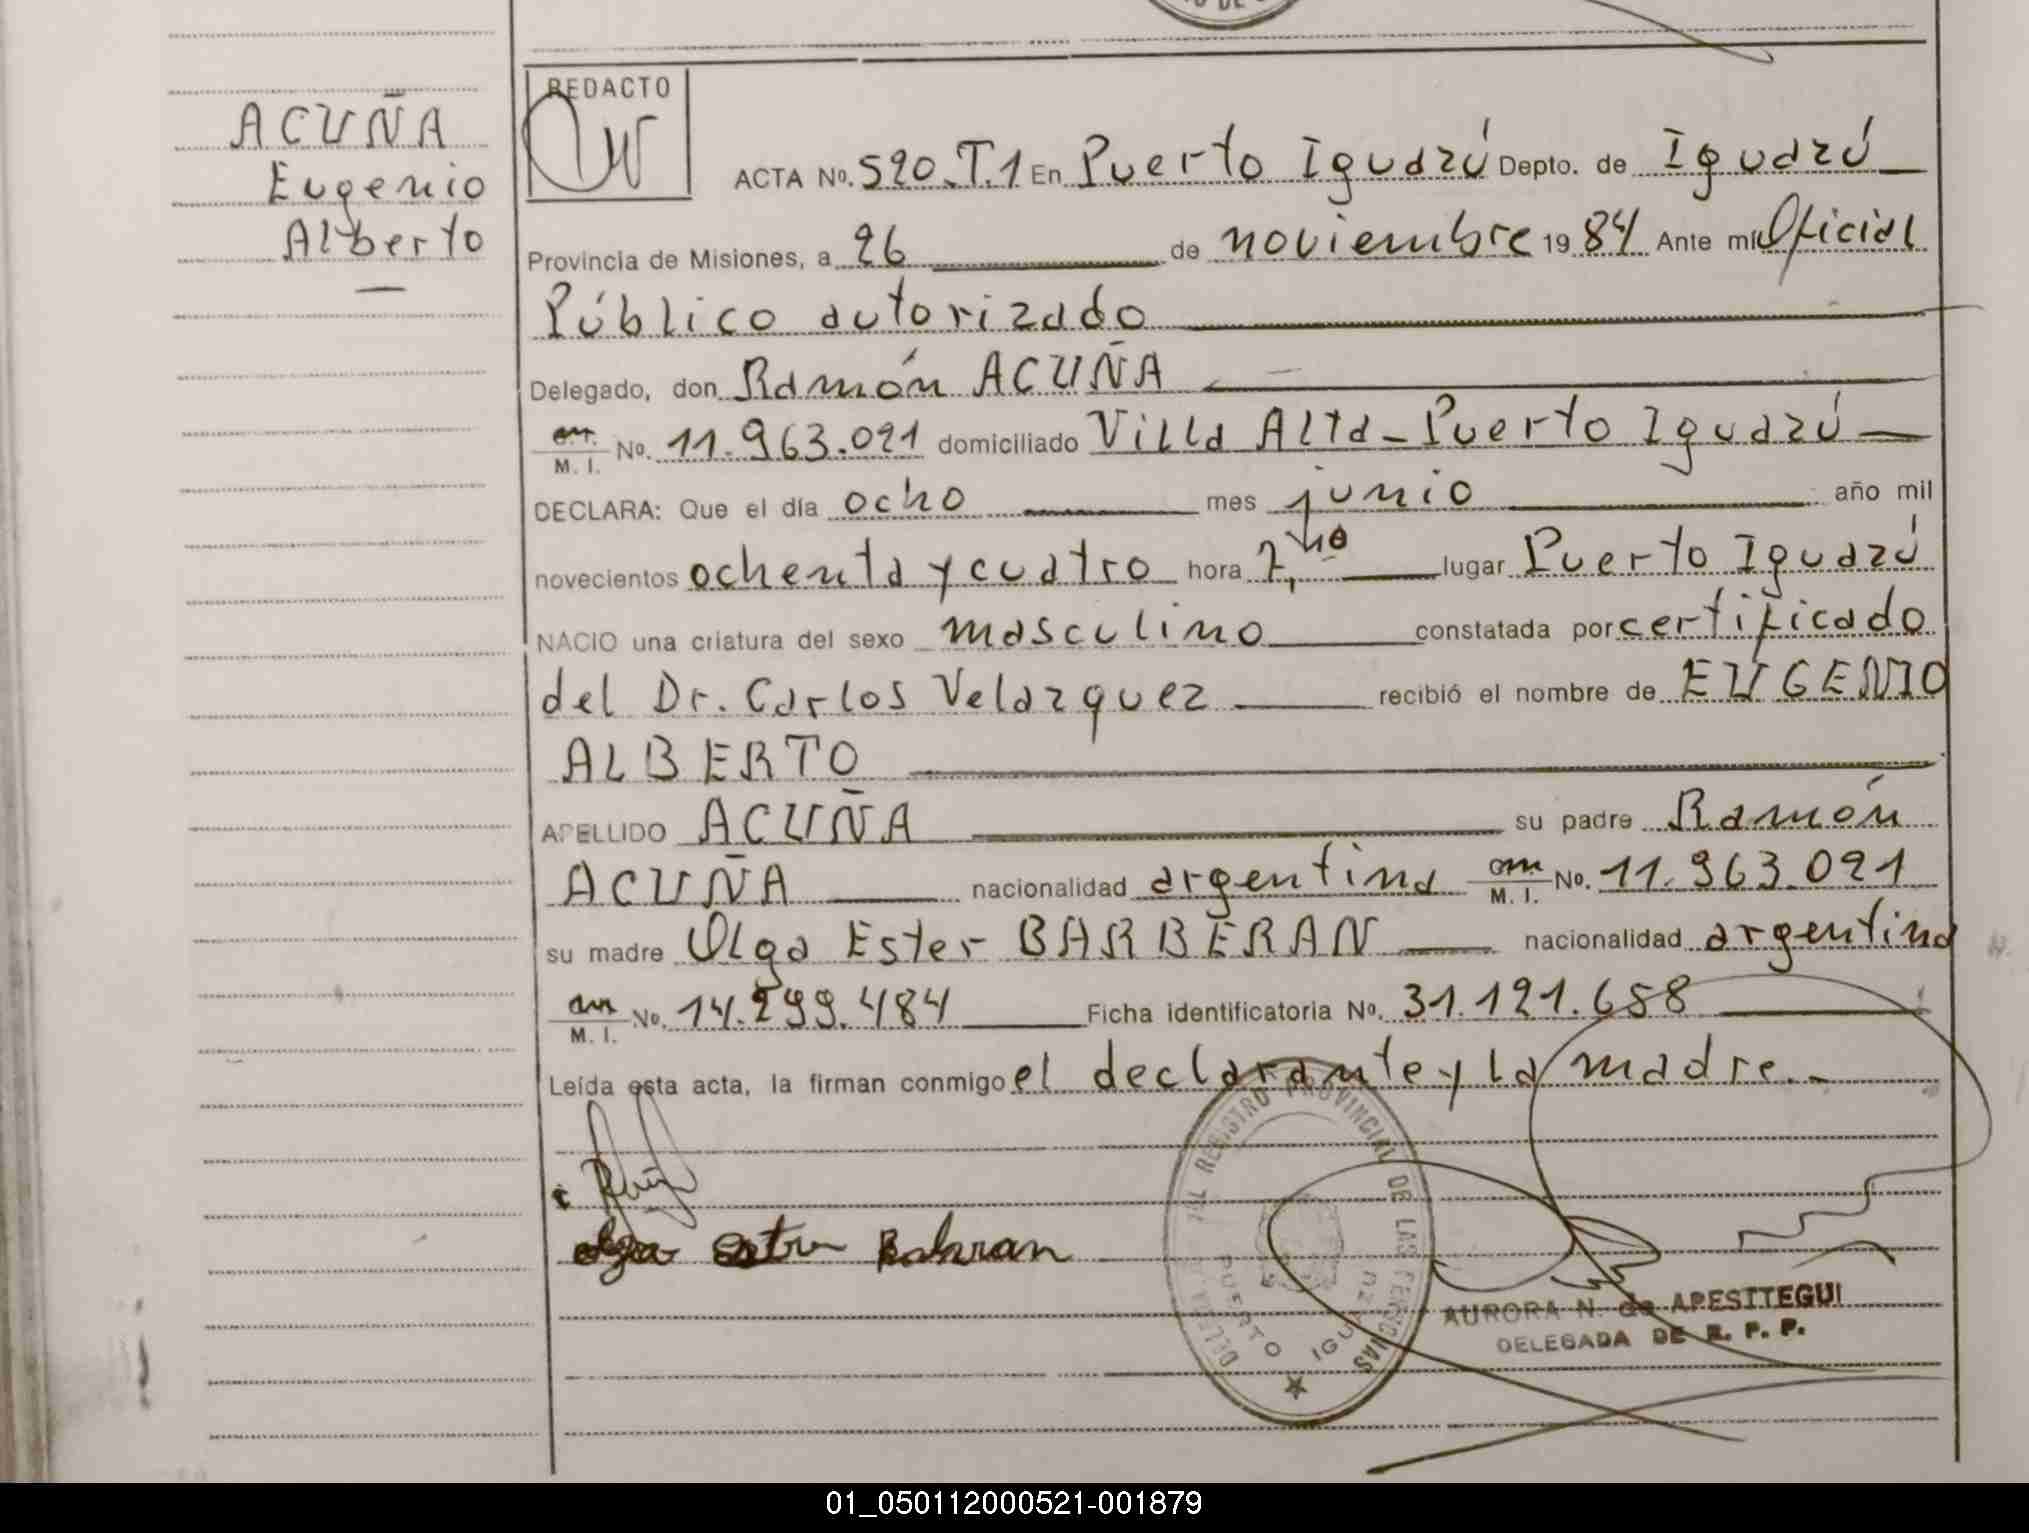 ACUÑA
Eugenio
Alberto
REDACTO
ACTA No. 520.T.1 En Puerto Iguazú Depto. de Iguazú
Provincia de Misiones, a 26 de noviembre 1984 Ante mi Oficial
Público autorizado
Delegado, don Ramón ACUÑA
M. I. No. 11.963.021 domiciliado Villa Alta - Puerto Iguazú
DECLARA: Que el día ocho mes junio año mil
novecientos ochenta y cuatro hora 7,40 lugar Puerto Iguazú
NACIO una criatura del sexo masculino constatada por certificado
del Dr. Carlos Velazquez recibió el nombre de EUGENIO
ALBERTO
APELLIDO ACUÑA su padre Ramón
ACUÑA nacionalidad argentina M. I. No. 11.963.021
su madre Olga Ester BARBERAN nacionalidad argentina
M. I. No. 14.299.484 Ficha identificatoria No. 31.121.658
Leída esta acta, la firman conmigo el declarante y la madre.-
REGISTRO PROVINCIAL DE LAS PERSONAS
PUERTO IGUAZU
AURORA N. de APESTTEGUI
DELEGADA DE R. P. P.
01_050112000521-001879